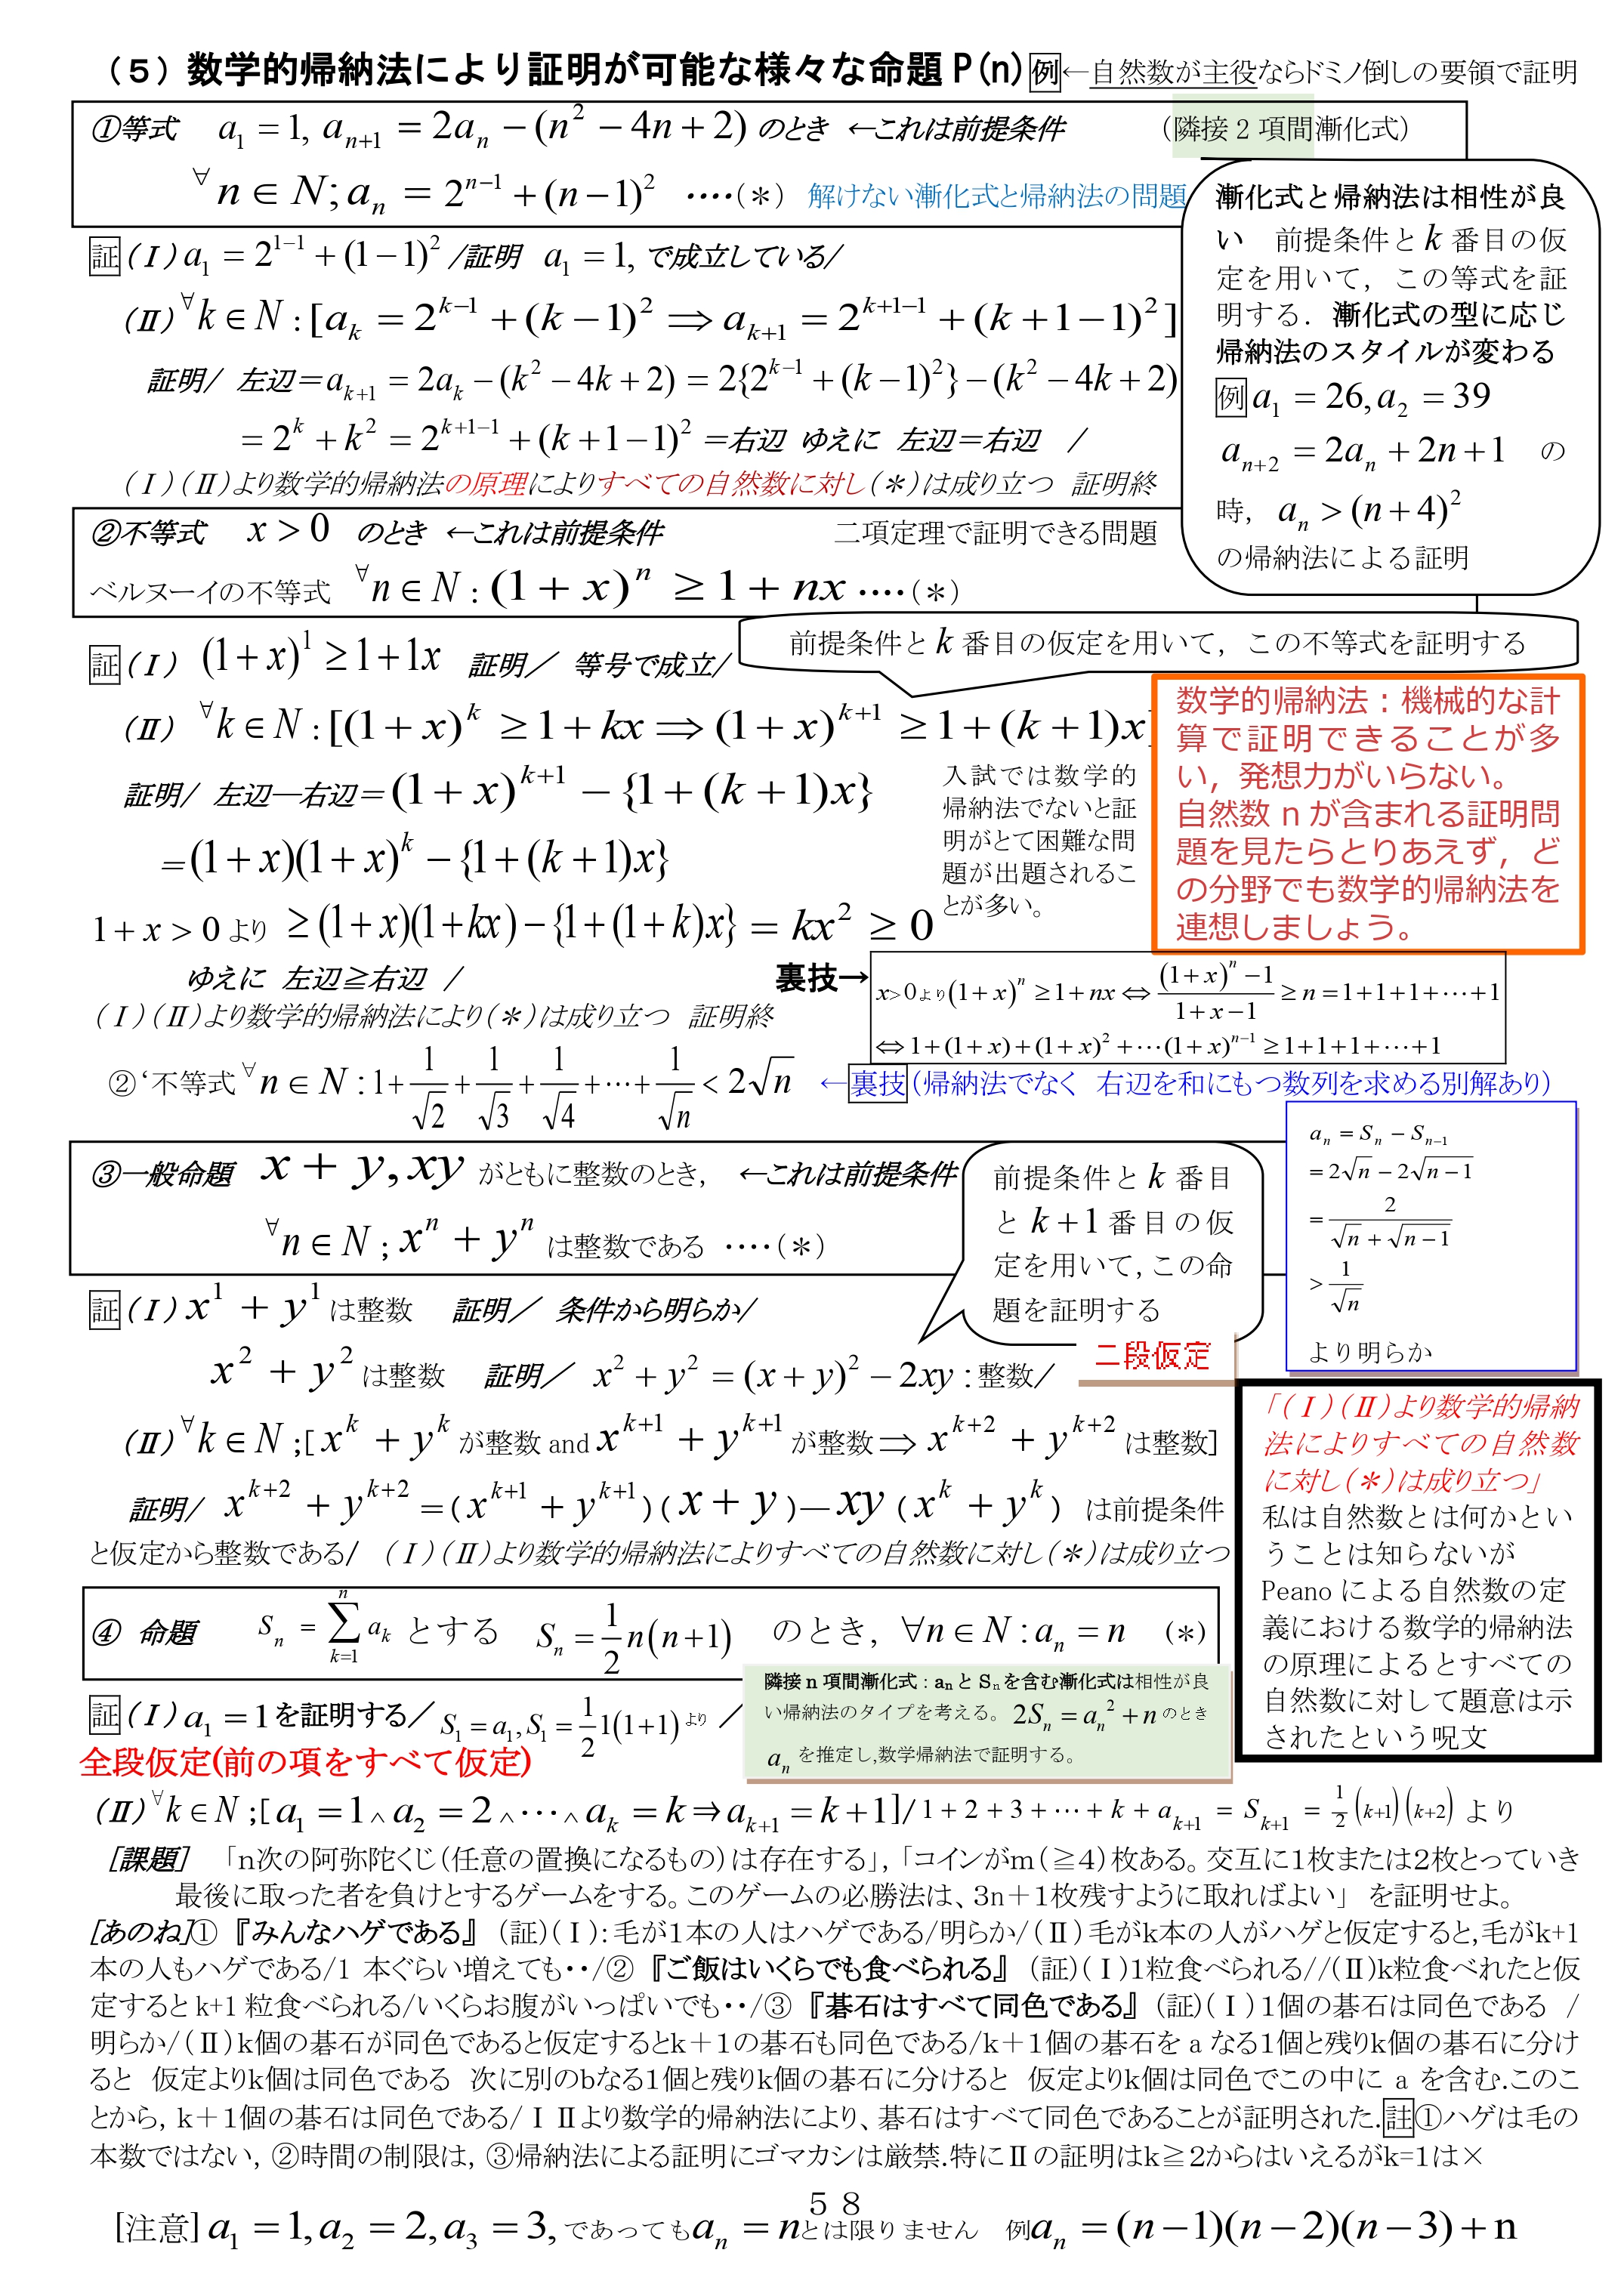 （５）数学的帰納法により証明が可能な様々な命題 P(n) 例←自然数が主役ならドミノ倒しの要領で証明
①等式 a₁ = 1, aₙ₊₁ = 2aₙ − (n² − 4n + 2) のとき ←これは前提条件 （隣接 2 項間漸化式）
∀n ∈ N; aₙ = 2ⁿ⁻¹ + (n−1)² ‥‥(＊) 解けない漸化式と帰納法の問題
漸化式と帰納法は相性が良
い 前提条件と k 番目の仮
定を用いて，この等式を証
明する．漸化式の型に応じ
帰納法のスタイルが変わる
例 a₁ = 26, a₂ = 39
aₙ₊₂ = 2aₙ + 2n + 1 の
時， aₙ > (n + 4)²
の帰納法による証明
証(Ⅰ) a₁ = 2¹⁻¹ + (1−1)² /証明 a₁ = 1, で成立している/
(Ⅱ) ∀k ∈ N : [aₖ = 2ᵏ⁻¹ + (k−1)² ⇒ aₖ₊₁ = 2ᵏ⁺¹⁻¹ + (k+1−1)²]
証明/ 左辺＝aₖ₊₁ = 2aₖ − (k² − 4k + 2) = 2{2ᵏ⁻¹ + (k−1)²} − (k² − 4k + 2)
= 2ᵏ + k² = 2ᵏ⁺¹⁻¹ + (k+1−1)² ＝右辺 ゆえに 左辺＝右辺 /
(Ⅰ)(Ⅱ)より数学的帰納法の原理によりすべての自然数に対し(＊)は成り立つ 証明終
②不等式 x > 0 のとき ←これは前提条件 二項定理で証明できる問題
ベルヌーイの不等式 ∀n ∈ N : (1 + x)ⁿ ≥ 1 + nx ‥‥(＊)
前提条件と k 番目の仮定を用いて，この不等式を証明する
証(Ⅰ) (1+x)¹ ≥ 1+1x 証明／ 等号で成立/
(Ⅱ) ∀k ∈ N : [(1+x)ᵏ ≥ 1+kx ⇒ (1+x)ᵏ⁺¹ ≥ 1+(k+1)x]
証明/ 左辺―右辺＝(1+x)ᵏ⁺¹ − {1+(k+1)x}
＝(1+x)(1+x)ᵏ − {1+(k+1)x}
1+x > 0 より ≥ (1+x)(1+kx) − {1+(1+k)x} = kx² ≥ 0
入試では数学的
帰納法でないと証
明がとて困難な問
題が出題されるこ
とが多い。
数学的帰納法：機械的な計
算で証明できることが多
い，発想力がいらない。
自然数 n が含まれる証明問
題を見たらとりあえず，ど
の分野でも数学的帰納法を
連想しましょう。
ゆえに 左辺≧右辺 /
(Ⅰ)(Ⅱ)より数学的帰納法により(＊)は成り立つ 証明終
裏技→ x>0より (1+x)ⁿ ≥ 1+nx ⇔ ((1+x)ⁿ −1)/(1+x−1) ≥ n = 1+1+1+⋯+1
⇔ 1+(1+x)+(1+x)² +⋯(1+x)ⁿ⁻¹ ≥ 1+1+1+⋯+1
②‘不等式 ∀n ∈ N : 1+1/√2+1/√3+1/√4+⋯+1/√n < 2√n ←裏技(帰納法でなく 右辺を和にもつ数列を求める別解あり)
aₙ = Sₙ − Sₙ₋₁
= 2√n − 2√(n−1)
= 2/(√n + √(n−1))
> 1/√n
より明らか
③一般命題 x + y, xy がともに整数のとき， ←これは前提条件
∀n ∈ N ; xⁿ + yⁿ は整数である ‥‥(＊)
前提条件と k 番目
と k+1 番目の仮
定を用いて，この命
題を証明する
二段仮定
証(Ⅰ) x¹ + y¹ は整数 証明／ 条件から明らか/
x² + y² は整数 証明／ x² + y² = (x+y)² − 2xy : 整数/
(Ⅱ) ∀k ∈ N ;[ xᵏ + yᵏ が整数 and xᵏ⁺¹ + yᵏ⁺¹ が整数 ⇒ xᵏ⁺² + yᵏ⁺² は整数]
証明/ xᵏ⁺² + yᵏ⁺² =(xᵏ⁺¹ + yᵏ⁺¹)(x + y)―xy (xᵏ + yᵏ) は前提条件
と仮定から整数である/ (Ⅰ)(Ⅱ)より数学的帰納法によりすべての自然数に対し(＊)は成り立つ
「(Ⅰ)(Ⅱ)より数学的帰納
法によりすべての自然数
に対し(＊)は成り立つ」
私は自然数とは何かとい
うことは知らないが
Peano による自然数の定
義における数学的帰納法
の原理によるとすべての
自然数に対して題意は示
されたという呪文
④ 命題 Sₙ = ∑ₖ₌₁ⁿ aₖ とする Sₙ = 1/2 n(n+1) のとき, ∀n ∈ N : aₙ = n (＊)
隣接 n 項間漸化式：aₙ と Sₙ を含む漸化式は相性が良
い帰納法のタイプを考える。 2Sₙ = aₙ² + n のとき
aₙ を推定し,数学帰納法で証明する。
証(Ⅰ) a₁ = 1を証明する／ S₁ = a₁, S₁ = 1/2 1(1+1) より ／
全段仮定(前の項をすべて仮定)
(Ⅱ) ∀k ∈ N ;[ a₁ = 1 ∧ a₂ = 2 ∧ ⋯ ∧ aₖ = k ⇒ aₖ₊₁ = k+1]/ 1+2+3+⋯+k+aₖ₊₁ = Sₖ₊₁ = 1/2 (k+1)(k+2) より
[課題] 「n次の阿弥陀くじ(任意の置換になるもの)は存在する」,「コインがm(≧4)枚ある。交互に1枚または2枚とっていき
最後に取った者を負けとするゲームをする。このゲームの必勝法は、3n＋1枚残すように取ればよい」 を証明せよ。
[あのね]①『みんなハゲである』(証)(Ⅰ):毛が1本の人はハゲである/明らか/(Ⅱ)毛がk本の人がハゲと仮定すると,毛がk+1
本の人もハゲである/1 本ぐらい増えても・・/②『ご飯はいくらでも食べられる』(証)(Ⅰ)1粒食べられる//(Ⅱ)k粒食べれたと仮
定すると k+1 粒食べられる/いくらお腹がいっぱいでも・・/③『碁石はすべて同色である』(証)(Ⅰ)1個の碁石は同色である /
明らか/(Ⅱ)k個の碁石が同色であると仮定するとk＋1の碁石も同色である/k＋1個の碁石を a なる1個と残りk個の碁石に分け
ると 仮定よりk個は同色である 次に別のbなる1個と残りk個の碁石に分けると 仮定よりk個は同色でこの中に a を含む.このこ
とから, k＋1個の碁石は同色である/ⅠⅡより数学的帰納法により、碁石はすべて同色であることが証明された.註①ハゲは毛の
本数ではない, ②時間の制限は, ③帰納法による証明にゴマカシは厳禁.特にⅡの証明はk≧2からはいえるがk=1は×
５８
[注意] a₁ = 1, a₂ = 2, a₃ = 3, であっても aₙ = n とは限りません 例 aₙ = (n−1)(n−2)(n−3)+n